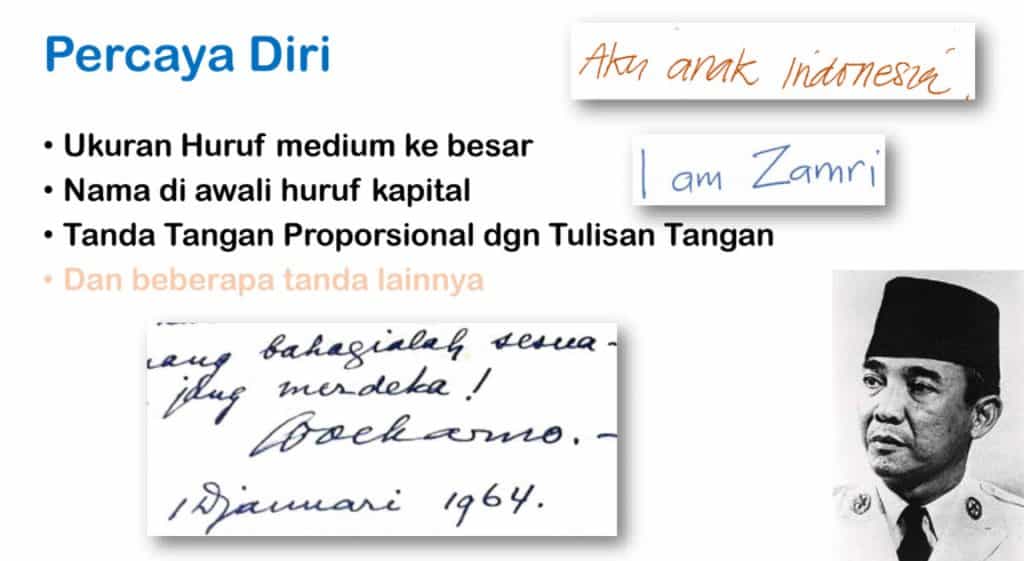 Percaya Diri
Aku anak Indonesia.
• Ukuran Huruf medium ke besar
I am Zamri
• Nama di awali huruf kapital
• Tanda Tangan Proporsional dgn Tulisan Tangan
• Dan beberapa tanda lainnya
bahagialah sesua-
jang merdeka!
Soekarno.-
1 Djanuari 1964.